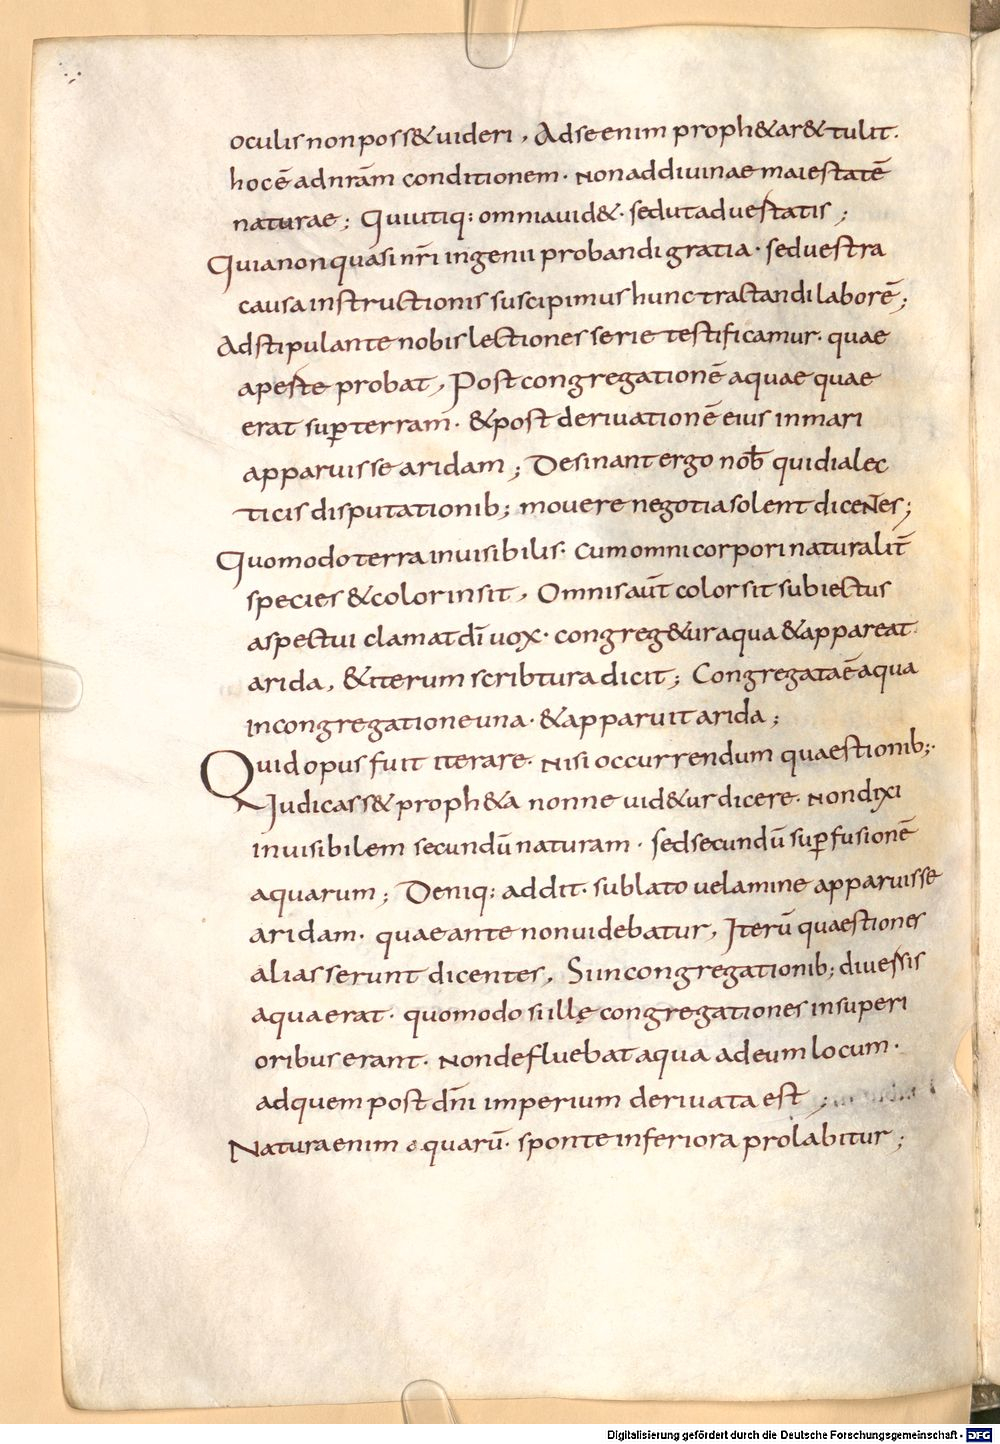 oculis non poss& uideri, Ad se enim proph&a r&tulit.
hoc ē ad nr̄am conditionem. Non ad diuinae maiestatē
naturae; Qui utiq: omnia uid&. sed ut aduestatis;
Quia non quasi nr̄i ingenii probandi gratia. sed uestra
causa instructionis suscipimus hunc tractandi laborē;
Adstipulante nobis lectiones serie testificamur. quae
apeste probat, Post congregationē aquae quae
erat sup̄ terram. & post deriuationē eius in mari
apparuisse aridam; Desinant ergo nob̄ qui dialec
ticis disputationib; mouere negotia solent dicentes;
Quomodo terra inuisibilis. cum omni corpori naturalit̄
species & color insit, Omnis aūt color sit subiectus
aspectui clamat dī uox. congreg&ur aqua & appareat
arida, & iterum scribtura dicit; Congregata ē aqua
in congregatione una. & apparuit arida;
Quid opus fuit iterare. Nisi occurrendum quaestionib;.
Iudicass& proph&a nonne uid&ur dicere. Non dixi
inuisibilem secundū naturam. sed secundū sup̄fusionē
aquarum; Deniq: addit. sublato uelamine apparuisse
aridam. quae ante non uidebatur, Iterū quaestiones
alias serunt dicentes, Si in congregationib; diuessis
aqua erat. quomodo si illę congregationes in superi
oribus erant. Non defluebat aqua ad eum locum.
ad quem post dn̄i imperium deriuata est;
Natura enim aquarū. sponte in inferiora prolabitur;
Digitalisierung gefördert durch die Deutsche Forschungsgemeinschaft - DFG